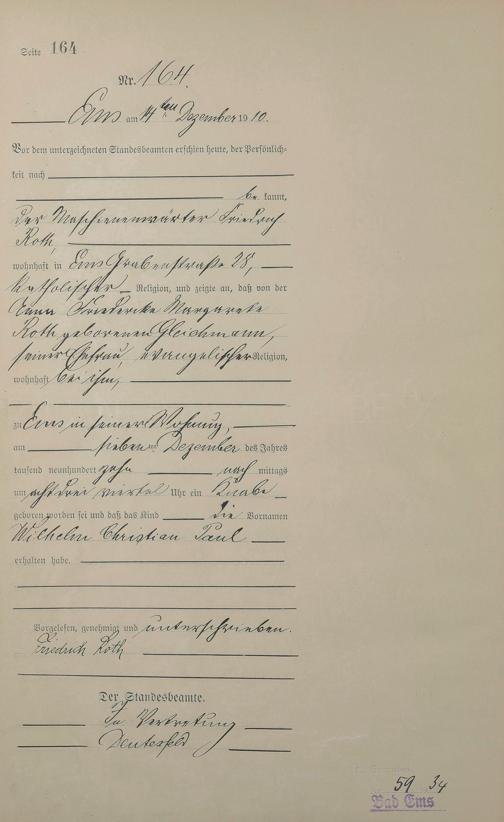 Seite 164
Nr. 164.
Ems am 14ten Dezember 1910.
Vor dem unterzeichneten Standesbeamten erschien heute, der Persönlich-
keit nach
be kannt,
der Maschienenwärter Friedrich
Roth,
wohnhaft in Ems Grabenstraße 28,
katholischer Religion, und zeigte an, daß von der
Anna Friedericke Margarete
Roth geborenen Gleichmann,
seiner Ehefrau, evangelischer Religion,
wohnhaft bei ihm,
zu Ems in seiner Wohnung,
am sieben ten Dezember des Jahres
tausend neunhundert zehn nach mittags
um acht drei viertel Uhr ein Knabe
geboren worden sei und daß das Kind die Vornamen
Wilhelm Christian Paul
erhalten habe.
Vorgelesen, genehmigt und unterschrieben.
Friedrich Roth
Der Standesbeamte.
In Vertretung
59 34
Bad Ems